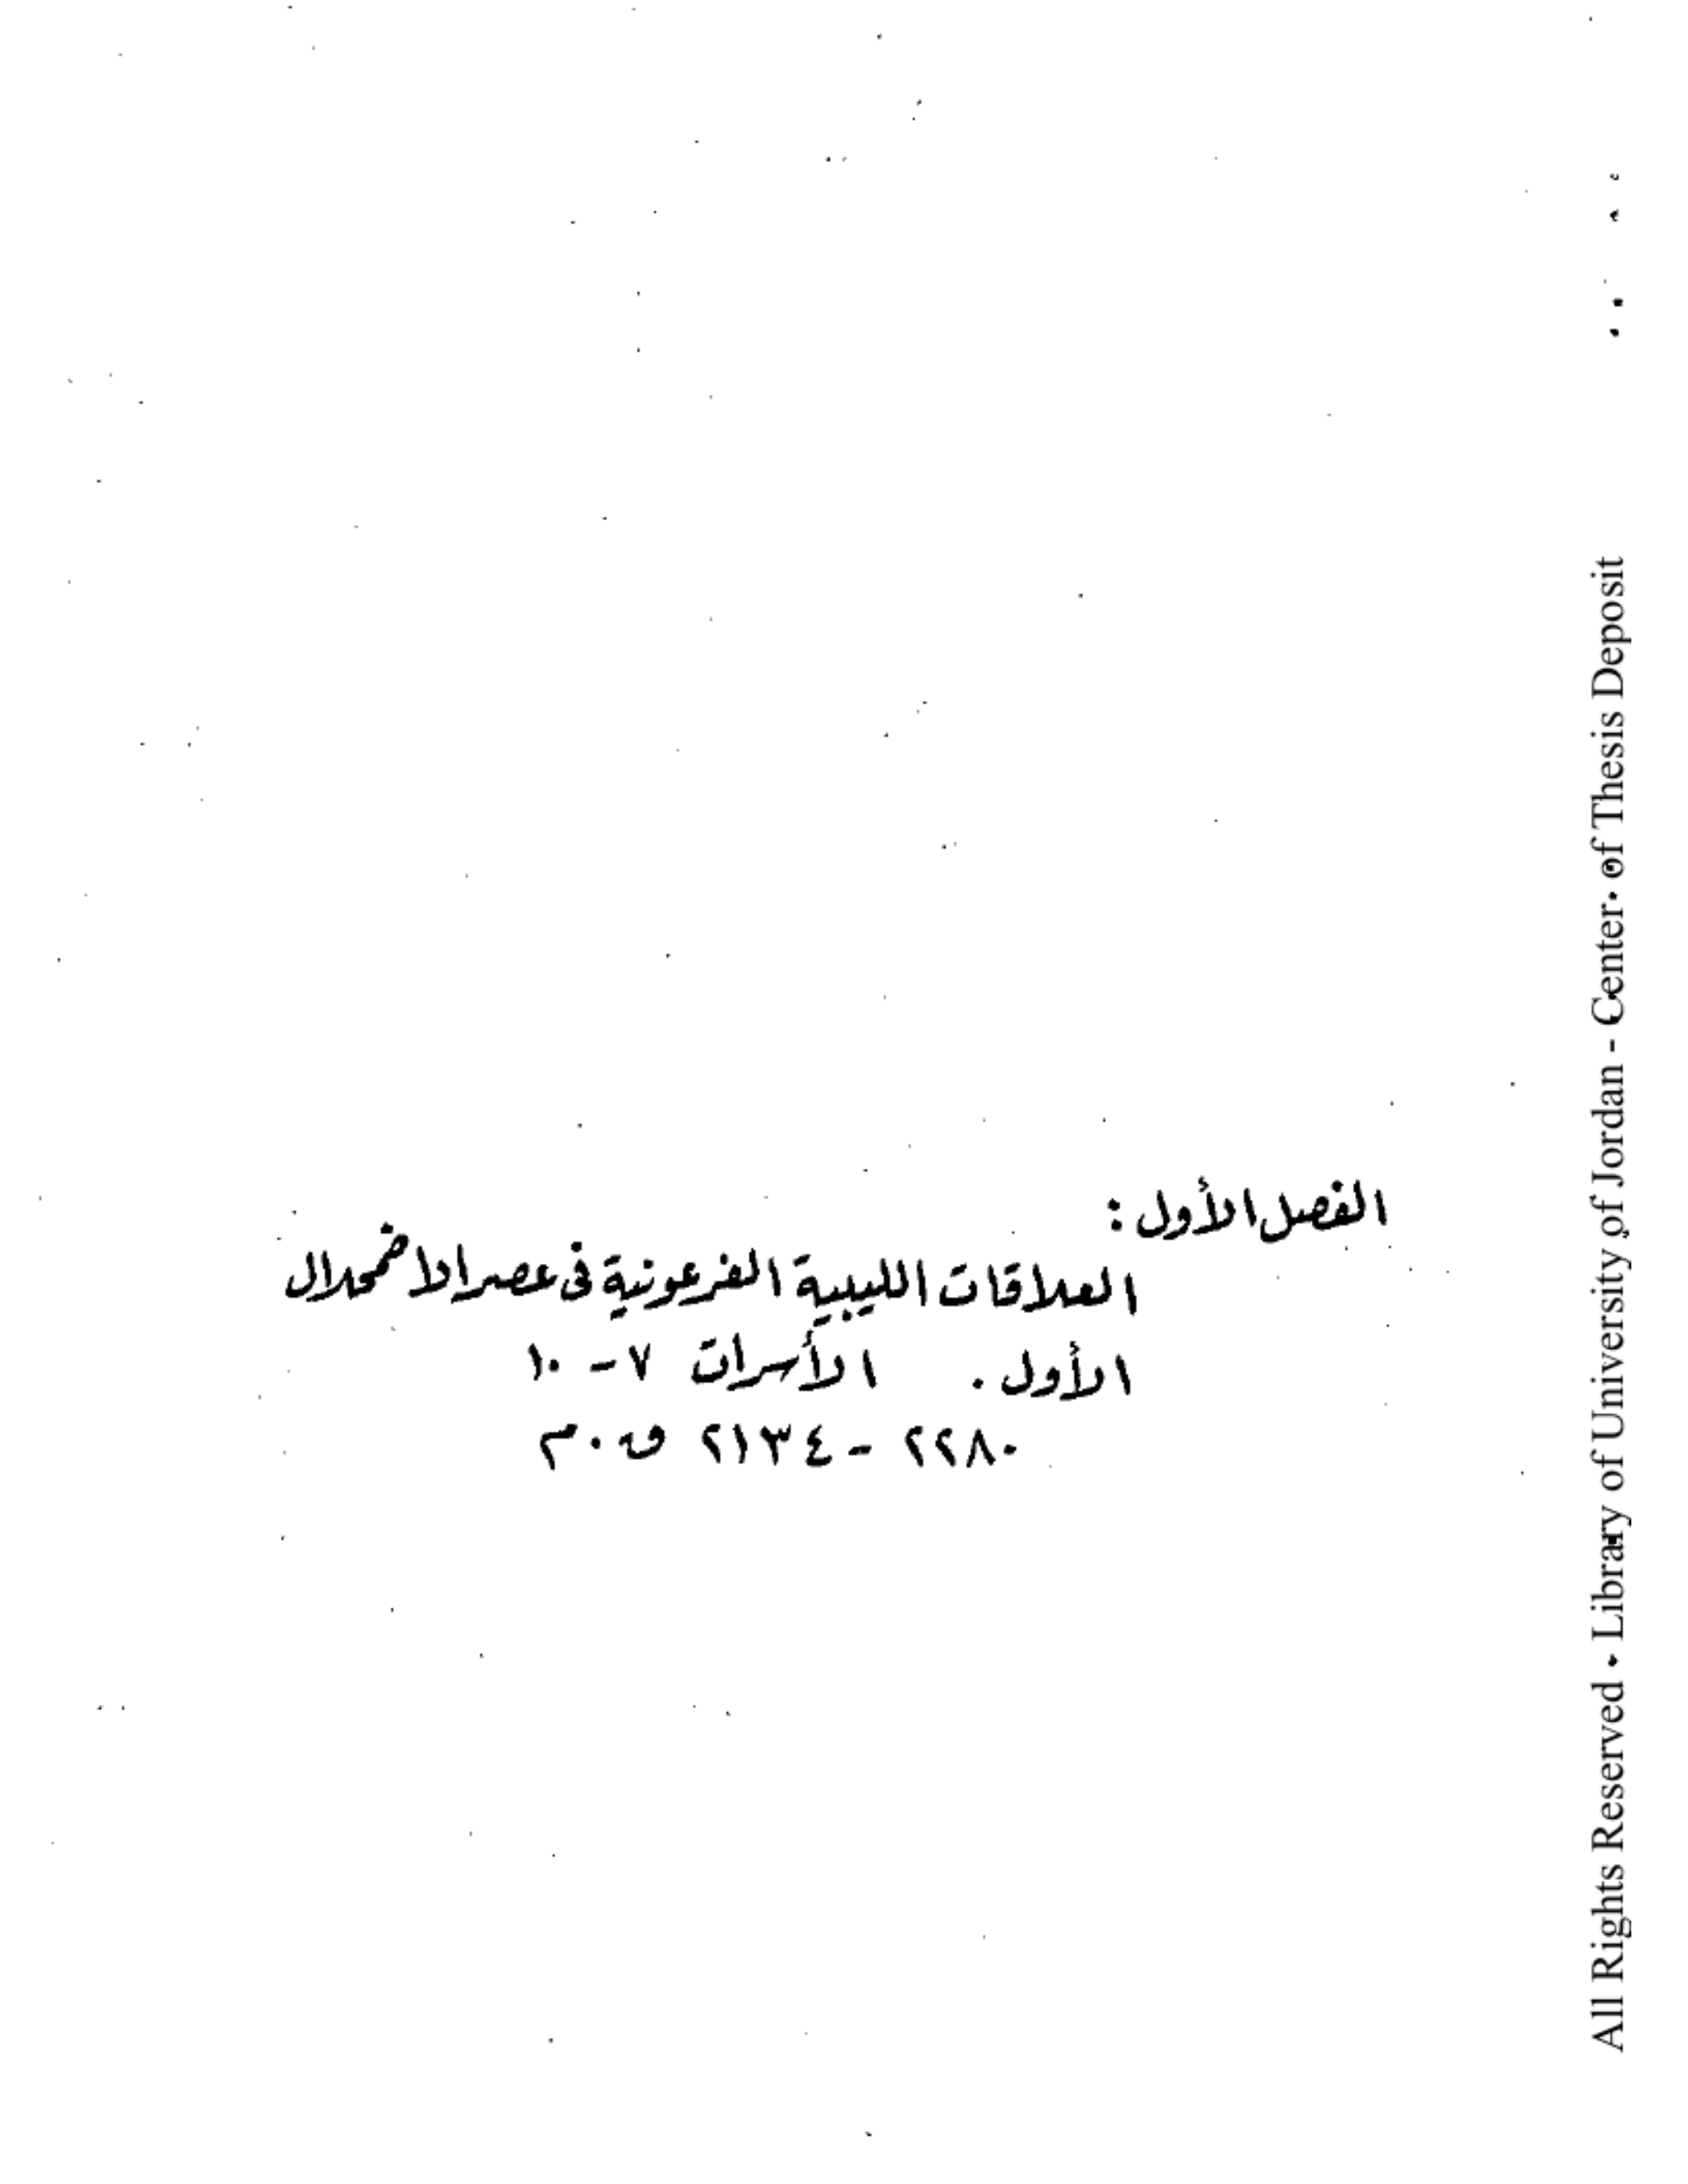 الفصل الأول :
العلاقات الليبية الفرعونية فى عصر الاضمحلال
الأول . الأسرات ٧ - ١٠
٢٢٨٠ - ٢١٣٤ ق . م
All Rights Reserved - Library of University of Jordan - Center of Thesis Deposit